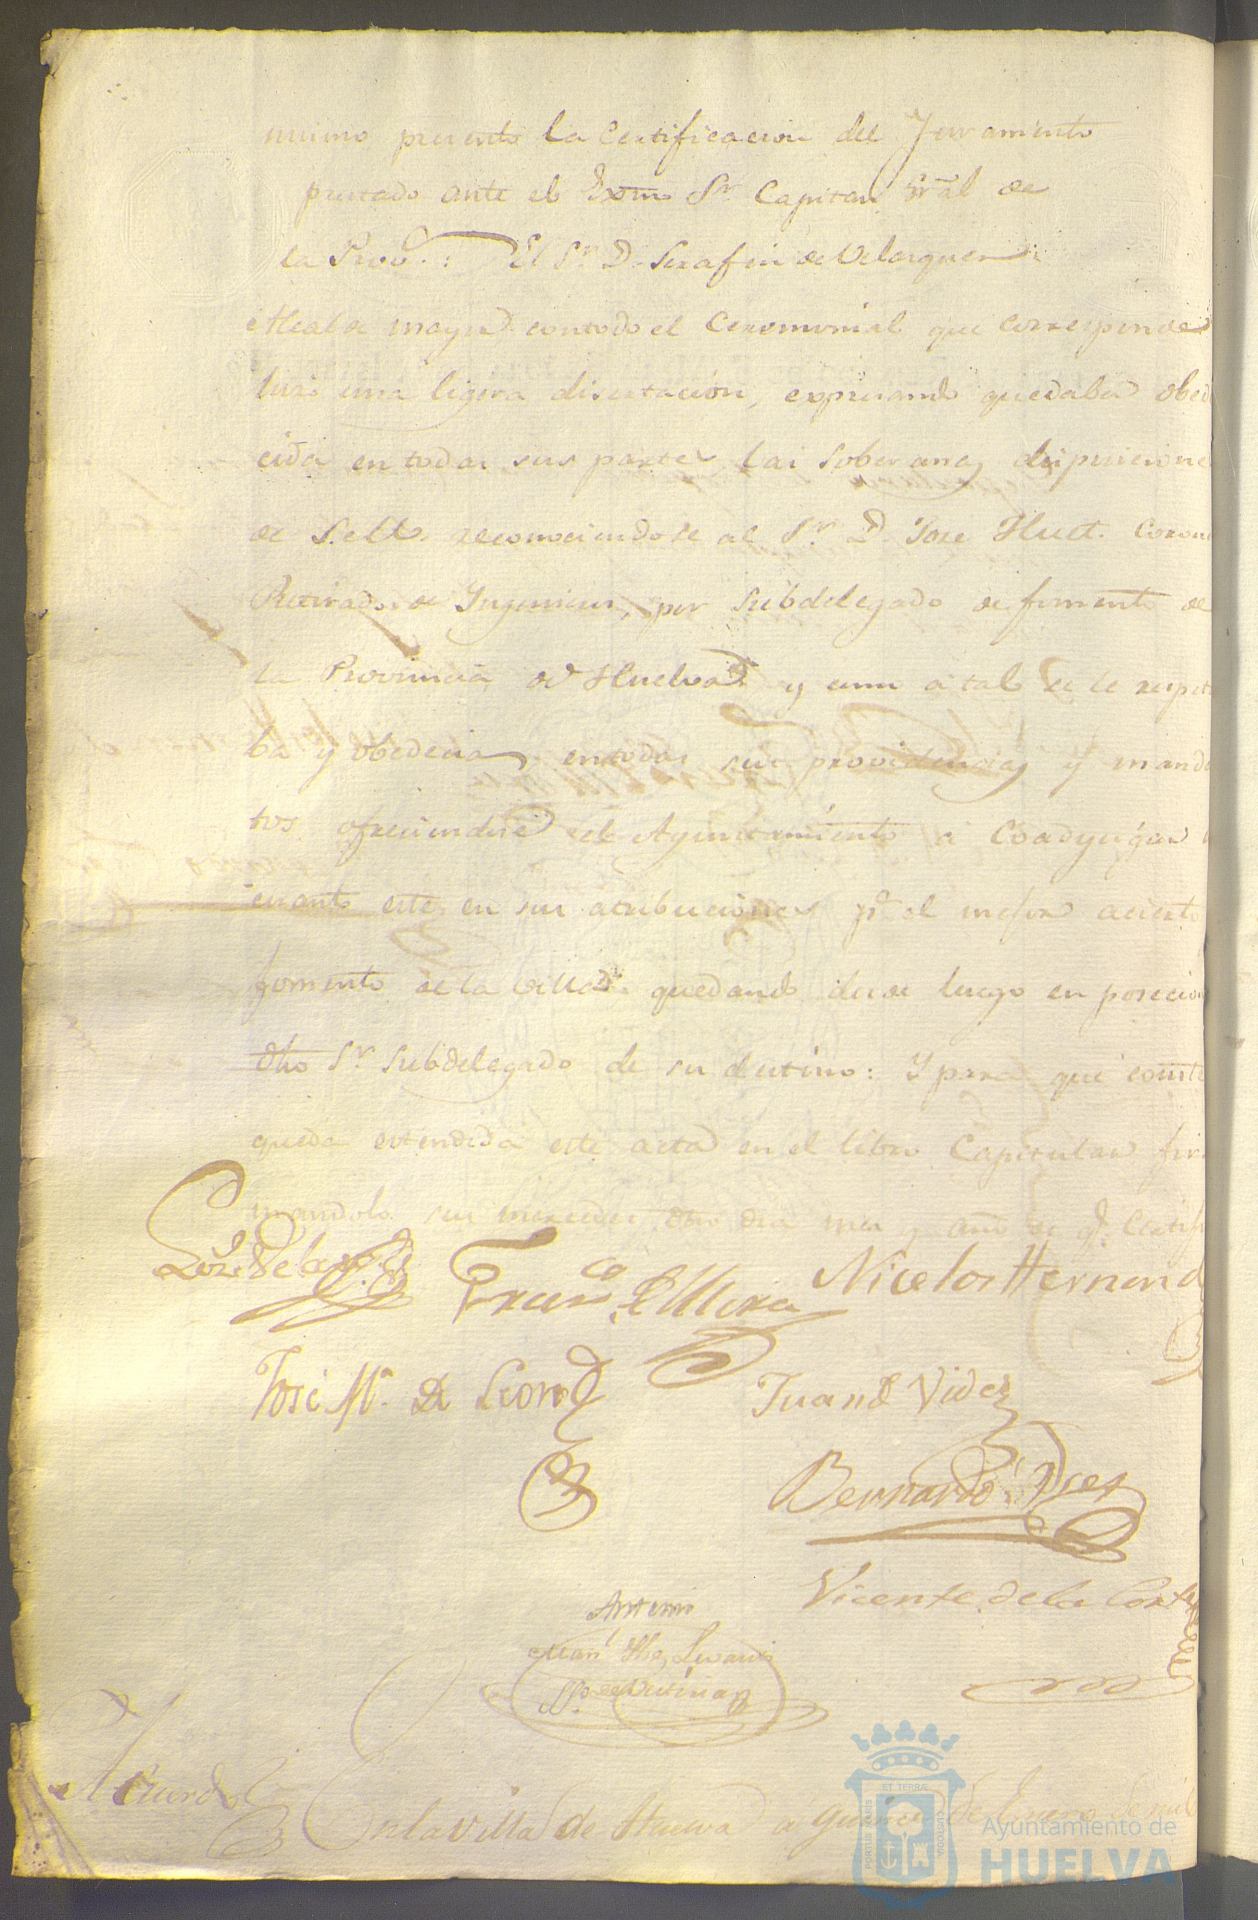 mismo presento la Certificacion del Juramento
prestado ante el Exmo Sr. Capitan Grāl de
la Prov.ª: El Sr. D. Serafin de Velasquez
Alcalde mayor con todo el Ceremonial que corresponde
hizo una ligera disertacion, expresando quedaba obede
cida en todas sus partes las Soberanas disposicione
de S.M. reconociendose al Sr. D. Jose Huet. Corone
Retirado de Ingenieros, por Subdelegado de fomento de
la Provincia de Huelva y como a tal se le respeta
ba y obedecia en todas sus providencias y manda
tos ofreciendose el Ayuntamiento a Coadyugar
cuanto este en sus atribuciones pª el mejor acierto
fomento de la Villa quedando desde luego en posecion
dho Sr. Subdelegado de su destino: Y para que conste
queda extendida este acta en el libro Capitular fir
mandolo sus mercedes dho dia mes y año de q. Certifi
Franco. de Mora Nicolas Hernand
José Mª. de Leon Juan de Videz
Bernardo Diez
Vicente de la Corte
Antemi
Acuerdo En la Villa de Huelva a quince de Enero de mil
PORTUS MARIS ET TERRÆ CUSTODIA
Ayuntamiento de
HUELVA